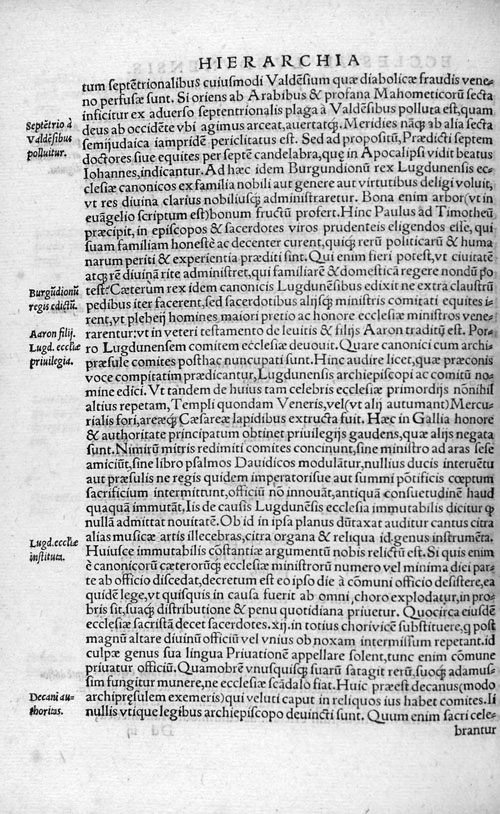 HIERARCHIA
tum septẽtrionalibus cuiusmodi Valdẽsium quæ diabolicæ fraudis vene-
no perfusæ sunt. Si oriens ab Arabibus & profana Mahometicorũ secta
inficitur ex aduerso septentrionalis plaga à Valdẽsibus polluta est, quam
deus ab occidẽte vbi agimus arceat, auertatq;. Meridies nãq; ab alia secta
semijudaica iampridẽ periclitatus est. Sed ad propositũ, Prædicti septem
doctores siue equites per septẽ candelabra, quę in Apocalipsi vidit beatus
Iohannes, indicantur. Ad hæc idem Burgundionũ rex Lugdunensis ec-
clesiæ canonicos ex familia nobili aut genere aut virtutibus deligi voluit,
vt res diuina clarius nobiliusq; administraretur. Bona enim arbor (vt in
euãgelio scriptum est) bonum fructũ profert. Hinc Paulus ad Timotheũ
præcipit, in episcopos & sacerdotes viros prudenteis eligendos esse, qui
suam familiam honestè ac decenter curent, quicq; rerũ politicarũ & huma
narum periti & experientia præditi sint. Qui enim fieri potest, vt ciuitatẽ
atq; rẽ diuinã rite administret, qui familiarẽ & domesticã regere nondũ po
test? Cæterùm rex idem canonicis Lugdunẽsibus edixit ne extra claustrũ
pedibus iter facerent, sed sacerdotibus alijsq; ministris comitati equites i-
rent, vt pleheij homines maiori pretio ac honore ecclesiæ ministros vene-
rarentur: vt in veteri testamento de leuitis & filijs Aaron traditũ est. Por-
ro Lugdunensem comitem ecclesiæ deuouit. Quare canonici cum archi-
præsule comites posthac nuncupati sunt. Hinc audire licet, quæ præconis
voce compitatim prædicantur, Lugdunensis archiepiscopi ac comitũ no-
mine edici. Vt tandem de huius tam celebris ecclesiæ primordijs nõnihil
altius repetam, Templi quondam Veneris, vel (vt alij autumant) Mercu-
rialis fori, aręæq; Cæsareæ lapidibus extructa fuit. Hæc in Gallia honore
& authoritate principatum obtinet priuilegijs gaudens, quæ alijs negata
sunt. Nimirũ mitris redimiti comites concinunt, sine ministro ad aras sese
amiciũt, sine libro psalmos Dauidicos modulãtur, nullius ducis interuẽtu
aut præsulis ne regis quidem imperatorisue aut summi põtificis cœptum
sacrificium intermittunt, officiũ nõ innouãt, antiquã consuetudinẽ haud
quaquã immutãt, Iis de causis Lugdunẽsis ecclesia immutabilis dicitur q
nullã admittat nouitatẽ. Ob id in ipsa planus dũtaxat auditur cantus citra
alias musicæ artis illecebras, citra organa & reliqua id genus instrumẽta.
Huiusce immutabilis cõstantiæ argumentũ nobis relictũ est. Si quis enim
è canonicorũ cæterorũq; ecclesiæ ministrorũ numero vel minima diei par-
te ab officio discedat, decretum est eo ipso die à cõmuni officio desistere, ea
quidẽ lege, vt quisquis in causa fuerit ab omni, choro explodatur, in pro-
bris sit, suaq; distributione & penu quotidiana priuetur. Quocirca eiusdẽ
ecclesiæ sacristã decet sacerdotes .xij. in totius chori vicẽ substituere, q post
magnũ altare diuinũ officiũ vel vnius ob noxam intermissum repetant. id
culpæ genus sua lingua Priuationẽ appellare solent, tunc enim cõmune
priuatur officiũ. Quamobrẽ vnusquisq; suarũ satagit rerũ, suoq; adamus-
sim fungitur munere, ne ecclesiæ scãdalo fiat. Huic præest decanus (modo
archipręsulem exemeris) qui veluti caput in reliquos ius habet comites. Ii
nullis vtique legibus archiepiscopo deuincti sunt. Quum enim sacri cele-
brantur
Septẽtrio à
Valdẽsibus
polluitur.
Burgũdionũ
regis edictũ.
Aaron filij.
Lugd. ecclię
priuilegia.
Lugd. ecclię
instituta.
Decani au-
thoritas.